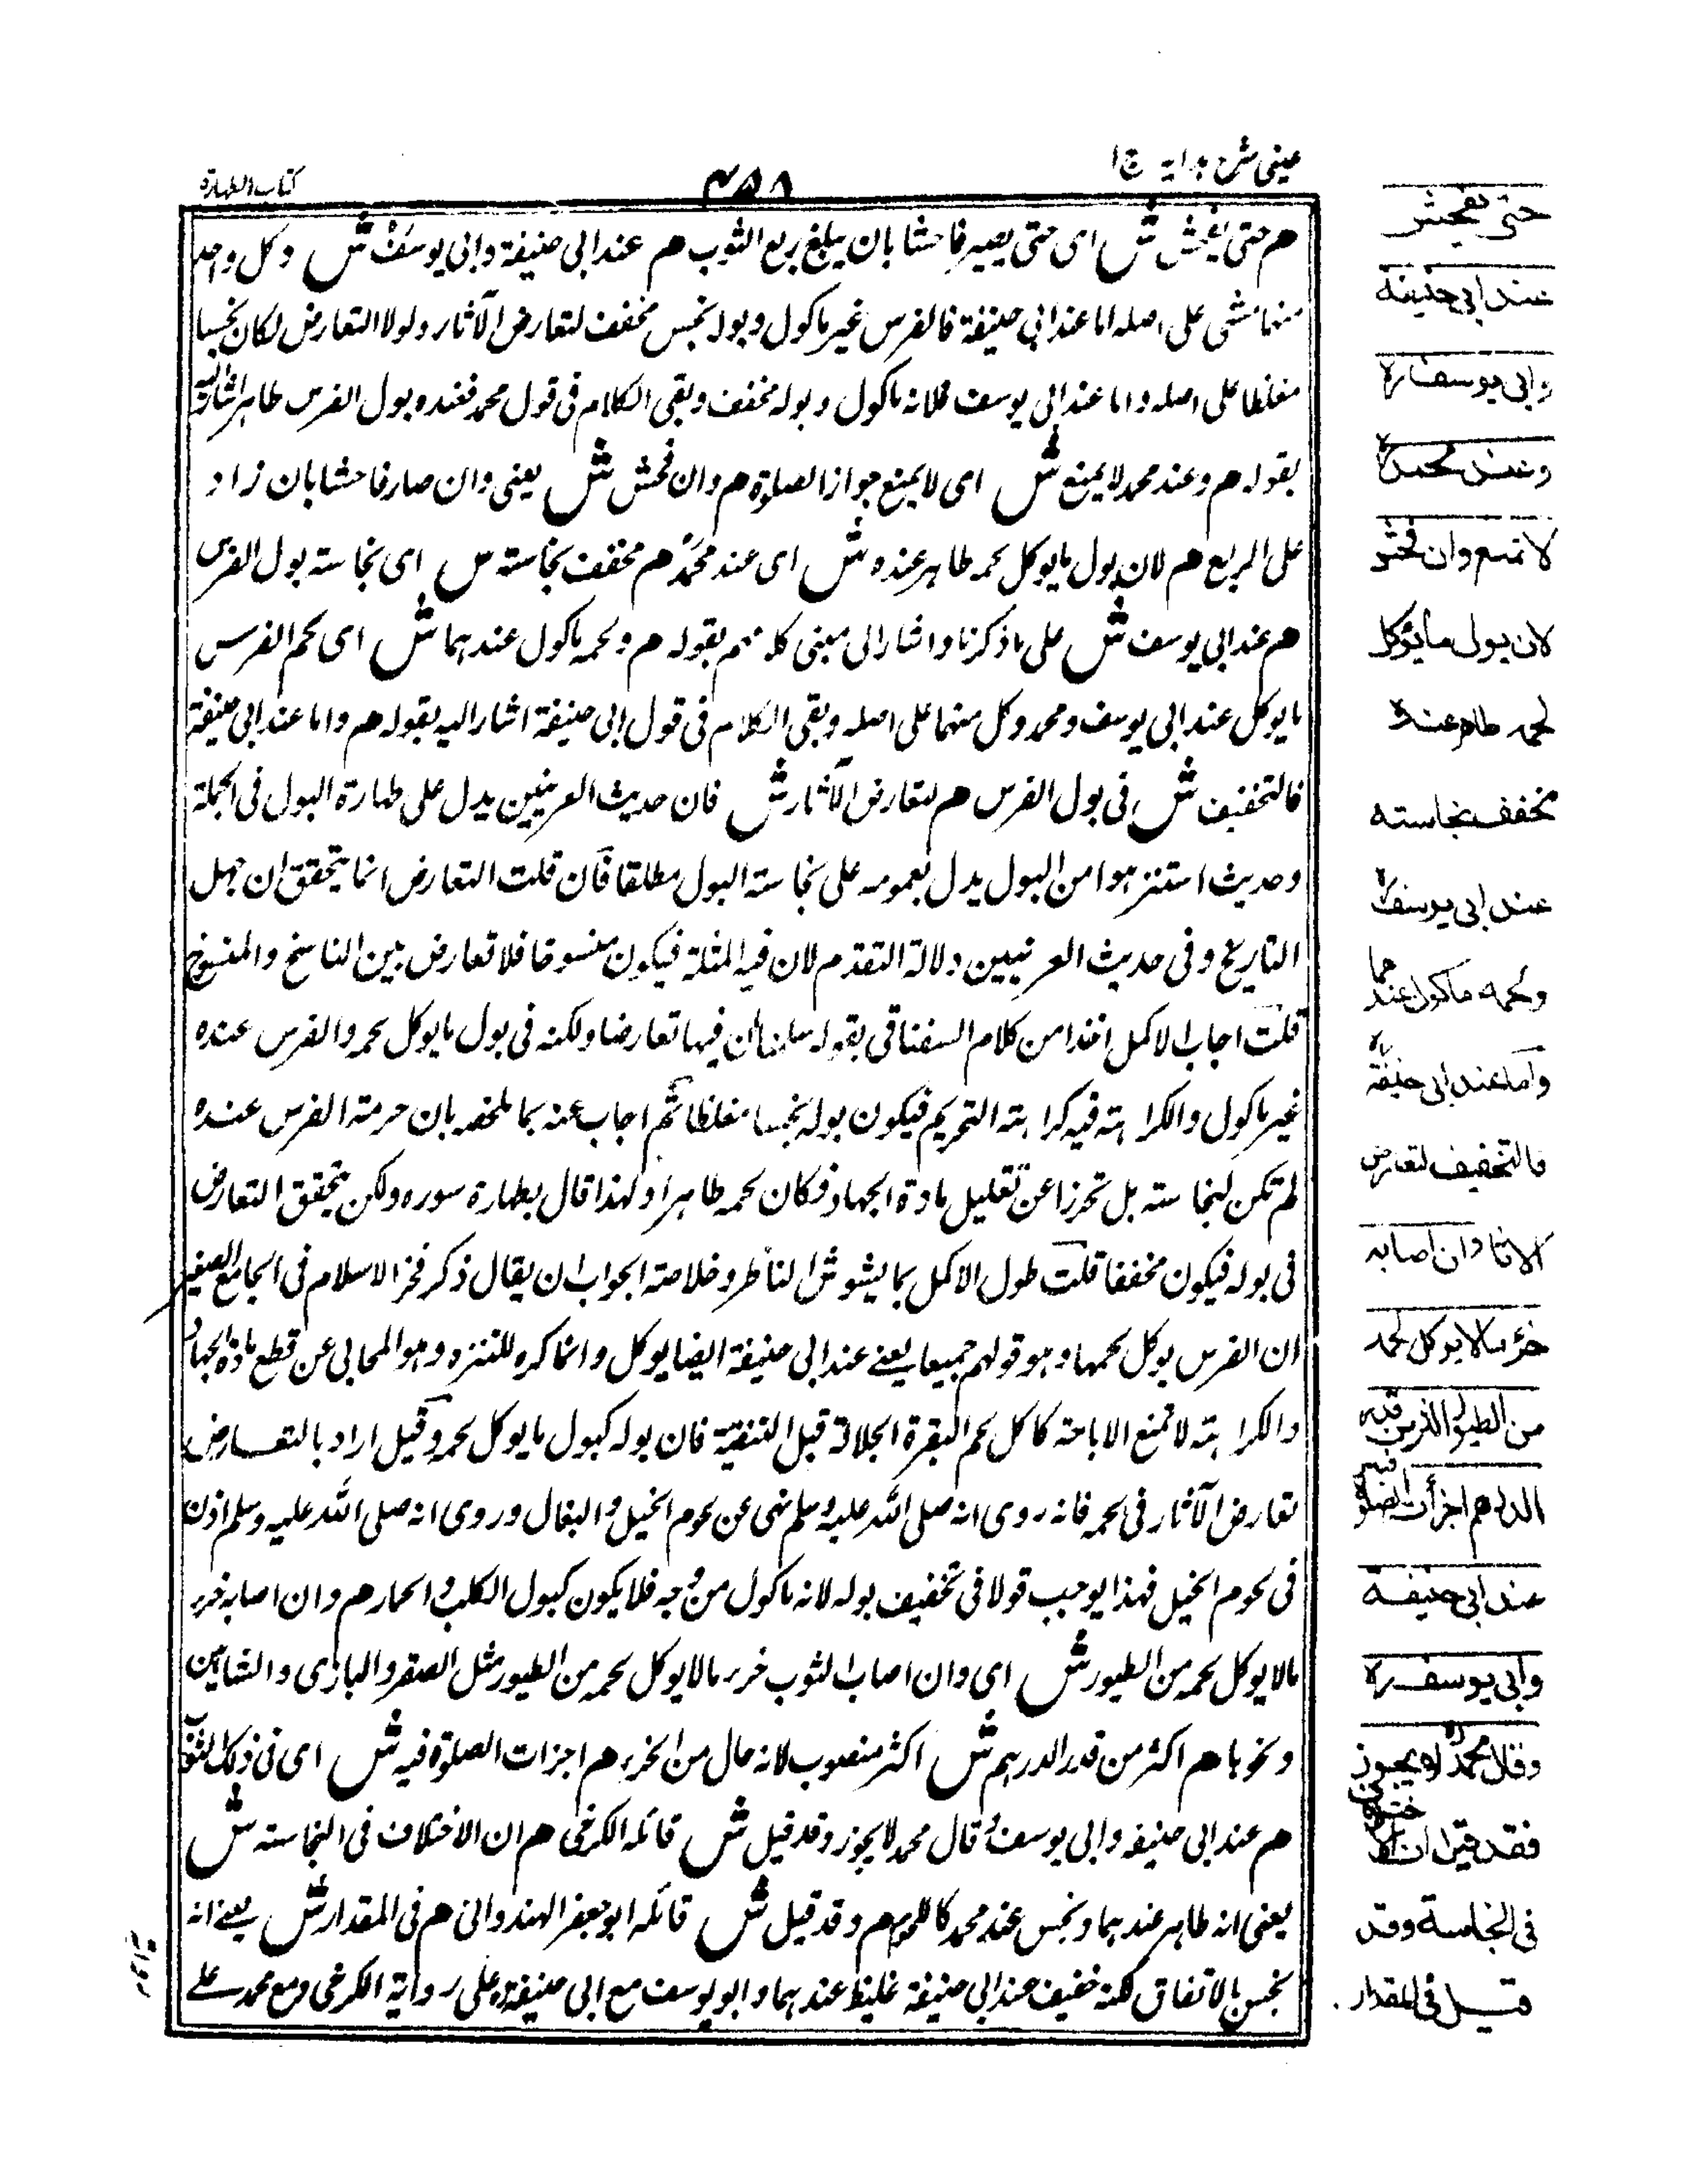 عینی شرح هدایه ج ۱
۴۵۸
کتاب الطهارة
هم حتی یفحش ش ای حتی یصیر فاحشا بان یبلغ ربع الثوب هم عند ابی حنیفة وابی یوسف ش وکل واحد
منهما مشی علی اصله اما عند ابی حنیفة فالفرس غیر ماکول وبوله نجس مخفف لتعارض الآثار ولولا التعارض لکان نجسا
مغلظا علی اصله واما عند ابی یوسف فلانه ماکول وبوله مخفف وبقی الکلام فی قول محمد فعنده بول الفرس طاهر اشار الیه
بقوله هم وعند محمد لا یمنع ش ای لا یمنع جواز الصلوة هم وان فحش ش یعنی وان صار فاحشا بان زاد
علی الربع هم لان بول مایوکل لحمه طاهر عنده ش ای عند محمد هم مخفف نجاسته ش ای نجاسته بول الفرس
هم عند ابی یوسف ش علی ما ذکرنا واشار الی مبنی کلامهم بقوله هم ولحمه ماکول عندهما ش ای لحم الفرس
مایوکل عند ابی یوسف ومحمد وکل منهما علی اصله وبقی الکلام فی قول ابی حنیفة اشار الیه بقوله هم واما عند ابی حنیفة
فالتخفیف ش فی بول الفرس هم لتعارض الآثار ش فان حدیث العرنیین یدل علی طهارة البول فی الجملة
وحدیث استنزهوا من البول یدل بعمومه علی نجاسته البول مطلقا فان قلت التعارض انما یتحقق ان جهل
التاریخ وفی حدیث العرنیین دلالة التقدم لان فیه المثلة فیکون منسوخا فلا تعارض بین الناسخ والمنسوخ
قلت اجاب الاکمل اخذا من کلام السغناقی بقوله سلمنا ان فیها تعارضا ولکنه فی بول مایوکل لحمه والفرس عنده
غیر ماکول والکراهته فیه کراهته التحریم فیکون بوله نجسا مغلظا ثم اجاب عنه بما ملخصه بان حرمة الفرس عنده
لم تکن لنجاسته بل تحرزا عن تقلیل مادة الجهاد فکان لحمه طاهرا ولهذا قال بطهارة سوره ولکن یتحقق التعارض
فی بوله فیکون مخففا قلت طول الاکمل بما یشوش الناظر وخلاصته الجواب ان یقال ذکر فخر الاسلام فی الجامع الصغیر
ان الفرس یوکل لحمها وهو قولهم جمیعا یعنے عند ابی حنیفة ایضا یوکل وانما کره للتنزه وهو المحابی عن قطع مادة الجهاد
والکراهته لا تمنع الاباحة کاکل لحم البقرة الجلالة قبل التنقیة فان بوله کبول مایوکل لحمه وقیل اراد بالتعارض
تعارض الآثار فی لحمه فانه روی انه صلی الله علیه وسلم نهی عن لحوم الخیل والبغال وروی انه صلی الله علیه وسلم اذن
فی لحوم الخیل فهذا یوجب قولا فی تخفیف بوله لانه ماکول من وجه فلا یکون کبول الکلب والحمار هم وان اصابه خرء
مالا یوکل لحمه من الطیور ش ای وان اصاب الثوب خرء مالا یوکل لحمه من الطیور مثل الصقر والبازی والشاهین
ونحوها هم اکثر من قدر الدرهم ش اکثر منصوب لانه حال من الخرء هم اجزات الصلوة فیه ش ای فی ذلک الثوب
هم عند ابی حنیفه وابی یوسف قال محمد لا یجوز وقد قیل ش قائله الکرخی هم ان الاختلاف فی النجاسته ش
یعنی انه طاهر عندهما ونجس عند محمد هم وقد قیل ش قائله ابو جعفر الهندوانی هم فی المقدار ش یعنے انه
نجس بالاتفاق لکنه خفیف عند ابی حنیفة غلیظ عندهما وابو یوسف مع ابی حنیفة علی روایة الکرخی ومع محمد علے
حتی یفحش
عند ابی حنیفة
وابی یوسف ره
وعند محمد ره
لا تمنع وان فحش
لان بول مایؤکل
لحمه طاهر عنده
مخفف نجاسته
عند ابی یوسف ره
ولحمه ماکول عندهما
واما عند ابی حنیفة ره
فالتخفیف لتعارض
الاثار وان اصابه
خرء مالا یوکل لحمه
من الطیور اکثر من قدر
الدرهم اجزأت الصلوة فیه
عند ابی حنیفة
وابی یوسف ره
وقال محمد ره لا یجوز
فقد قیل ان الاختلاف
فی النجاسة وقد
قیل فی المقدار